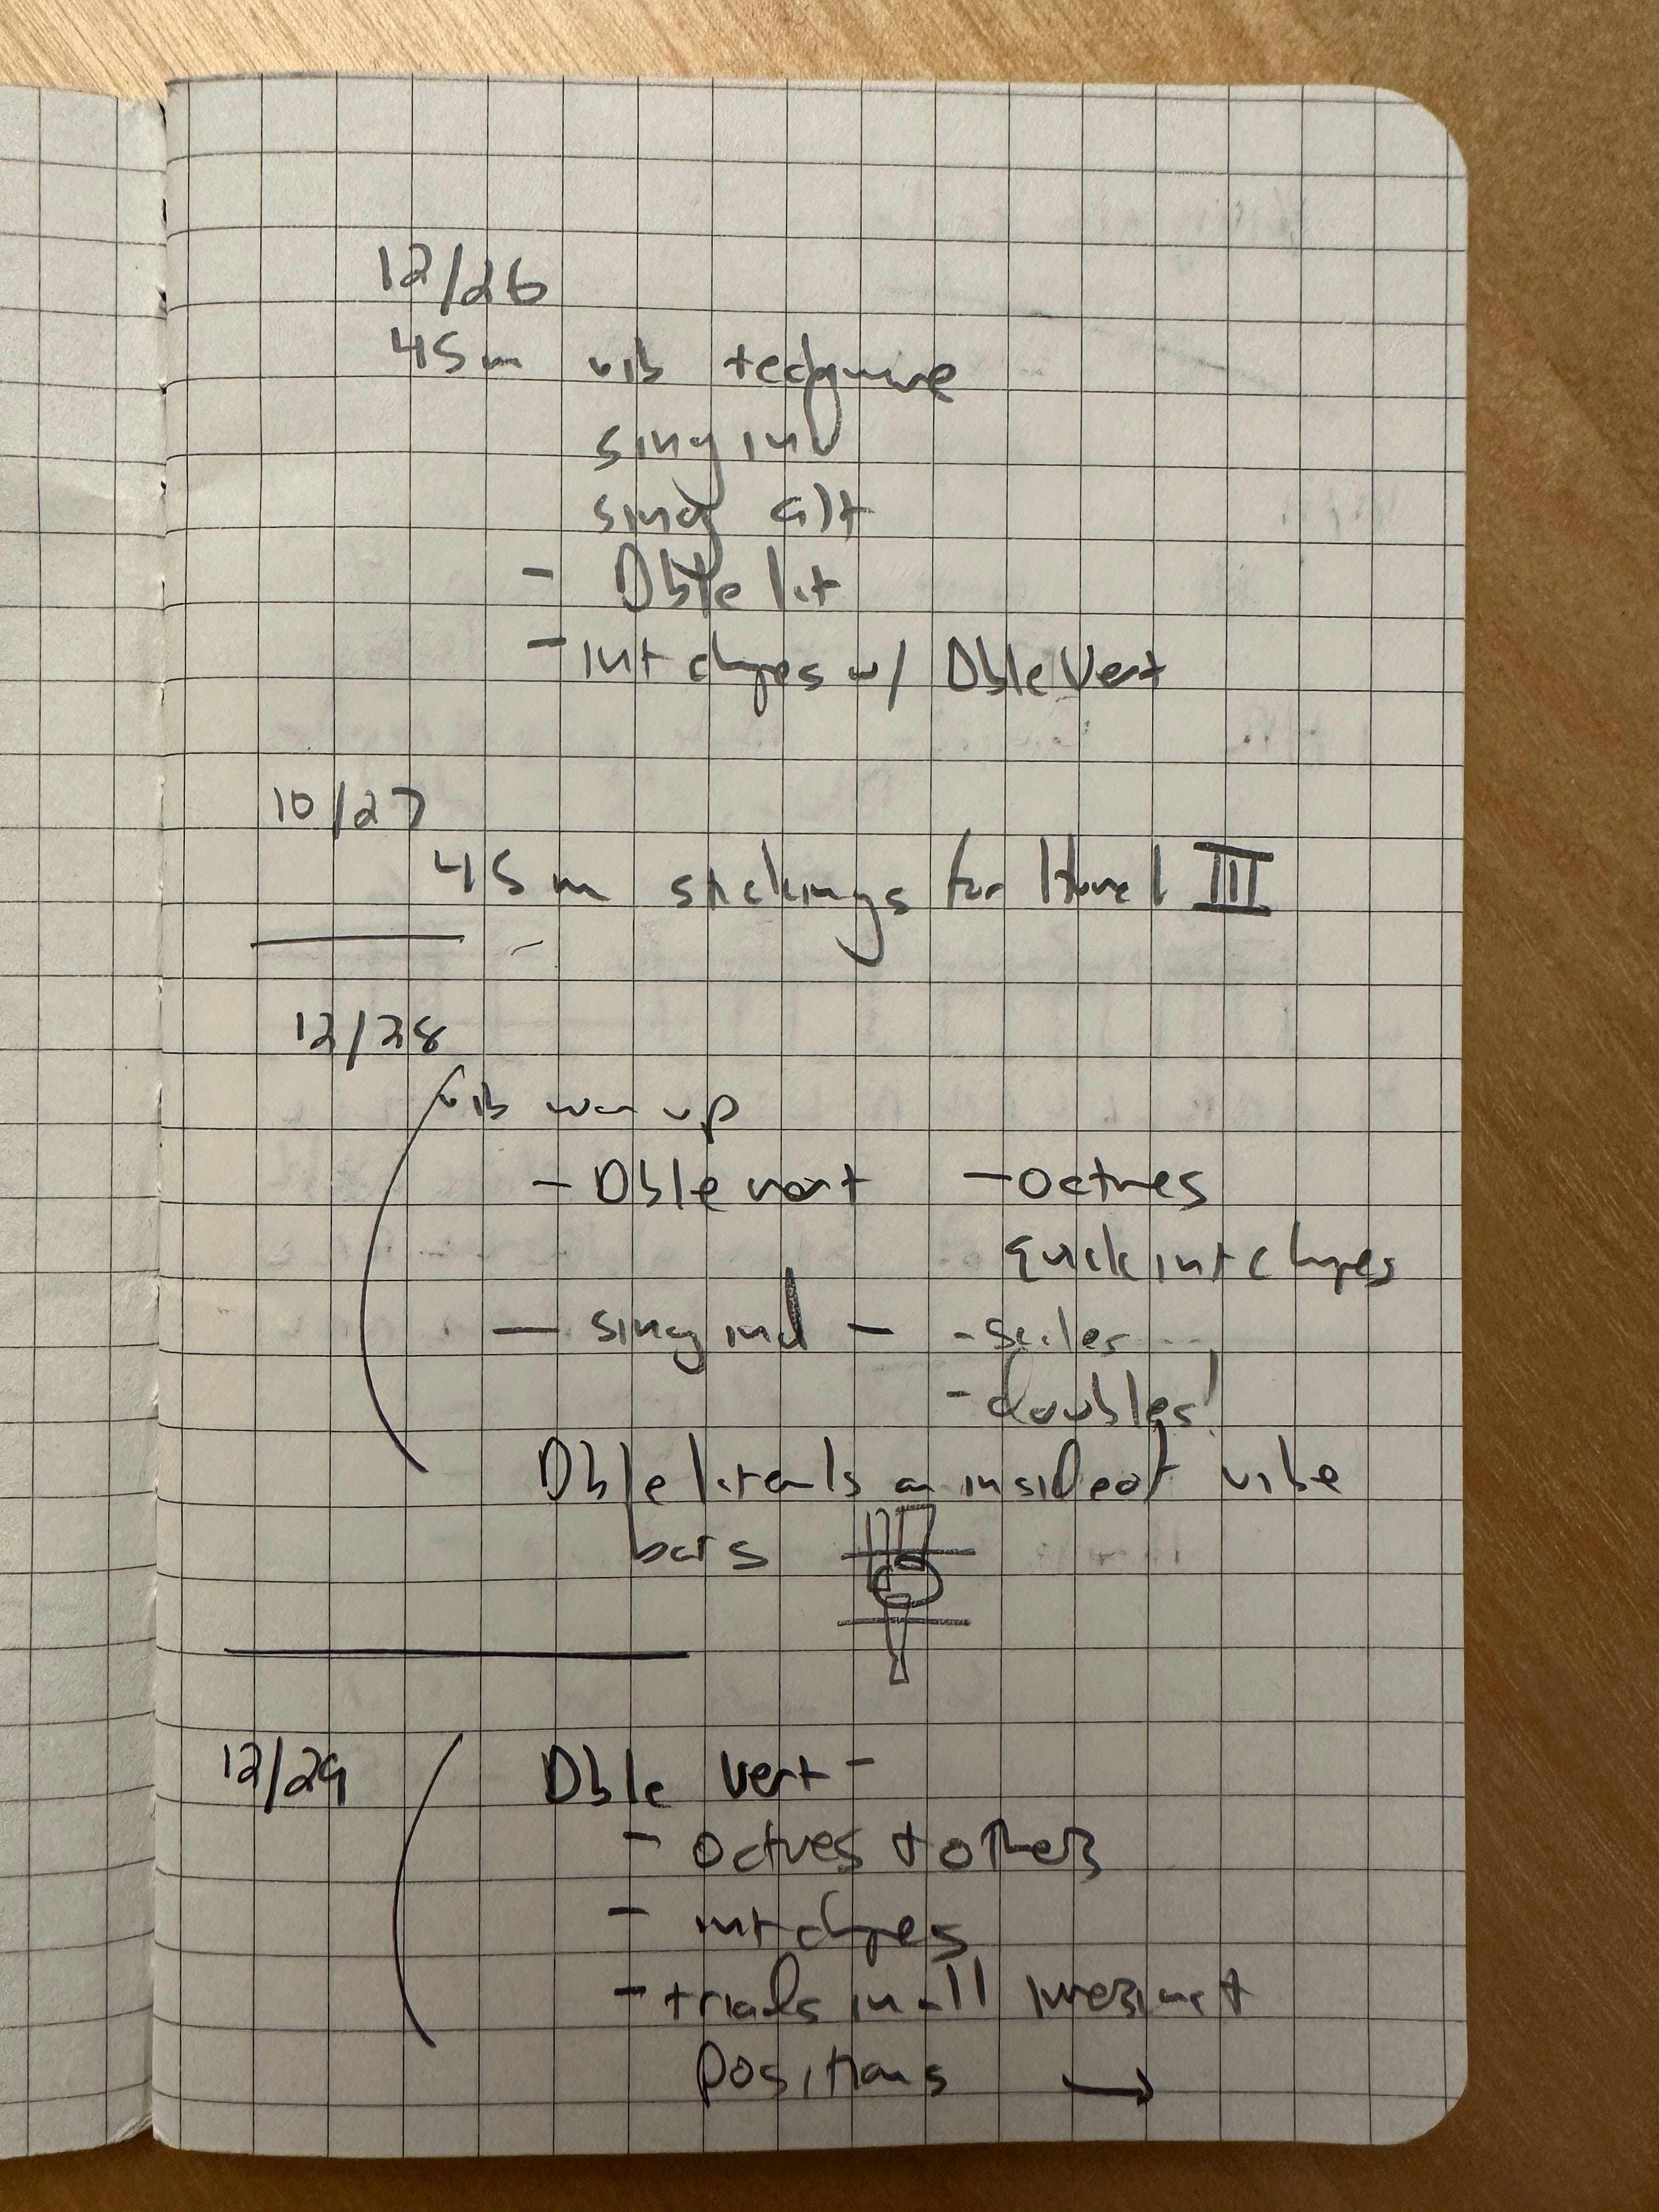 12/26
45m vib technique
sing ind
sing alt
- Dble lat
- int chnges w/ Dble Vert
10/27
45m stickings for III
12/28
vib warm up
- Dble vert - octaves
quick int chnges
- sing ind - - scales
- doubles!
Dble laterals on inside of vibe
bars
12/29 Dble Vert -
- octves + others
- int chnges
- triads in all
positions →